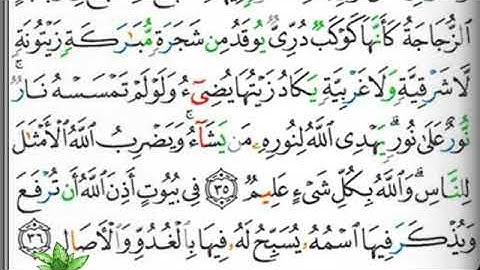 ٱلزُّجَاجَةُ كَأَنَّهَا كَوْكَبٌ دُرِّيٌّ يُوقَدُ مِن شَجَرَةٍ مُّبَـٰرَكَةٍ زَيْتُونَةٍ
لَّا شَرْقِيَّةٍ وَلَا غَرْبِيَّةٍ يَكَادُ زَيْتُهَا يُضِىٓءُ وَلَوْ لَمْ تَمْسَسْهُ نَارٌ ۚ
نُّورٌ عَلَىٰ نُورٍ ۗ يَهْدِى ٱللَّهُ لِنُورِهِۦ مَن يَشَآءُ ۚ وَيَضْرِبُ ٱللَّهُ ٱلْأَمْثَـٰلَ
لِلنَّاسِ ۗ وَٱللَّهُ بِكُلِّ شَىْءٍ عَلِيمٌ ٣٥ فِى بُيُوتٍ أَذِنَ ٱللَّهُ أَن تُرْفَعَ
وَيُذْكَرَ فِيهَا ٱسْمُهُۥ يُسَبِّحُ لَهُۥ فِيهَا بِٱلْغُدُوِّ وَٱلْـَٔاصَالِ ٣٦